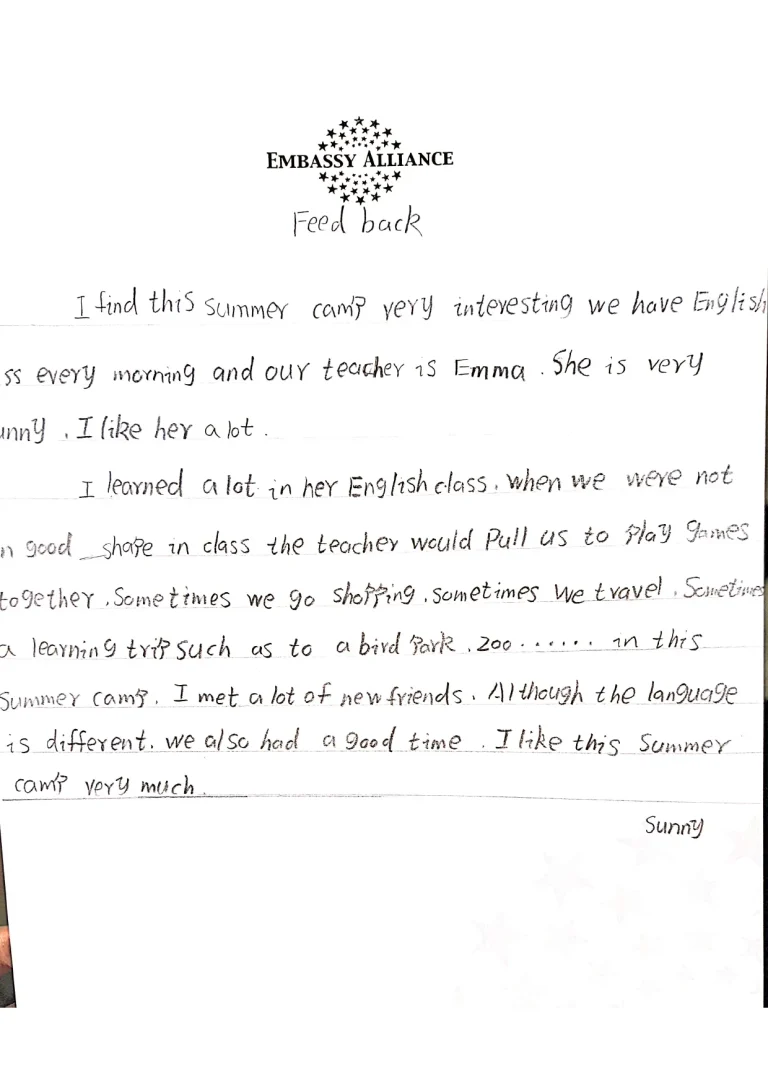 EMBASSY ALLIANCE
Feed back
I find this summer camp very interesting we have English
ss every morning and our teacher is Emma. She is very
unny. I like her a lot.
I learned a lot in her English class. when we were not
n good shape in class the teacher would Pull us to play games
together. Sometimes we go shopping. sometimes we travel. Sometimes
a learning trip such as to a bird Park. zoo ...... in this
Summer camp. I met a lot of new friends. Although the language
is different. we also had a good time. I like this Summer
camp very much.
Sunny